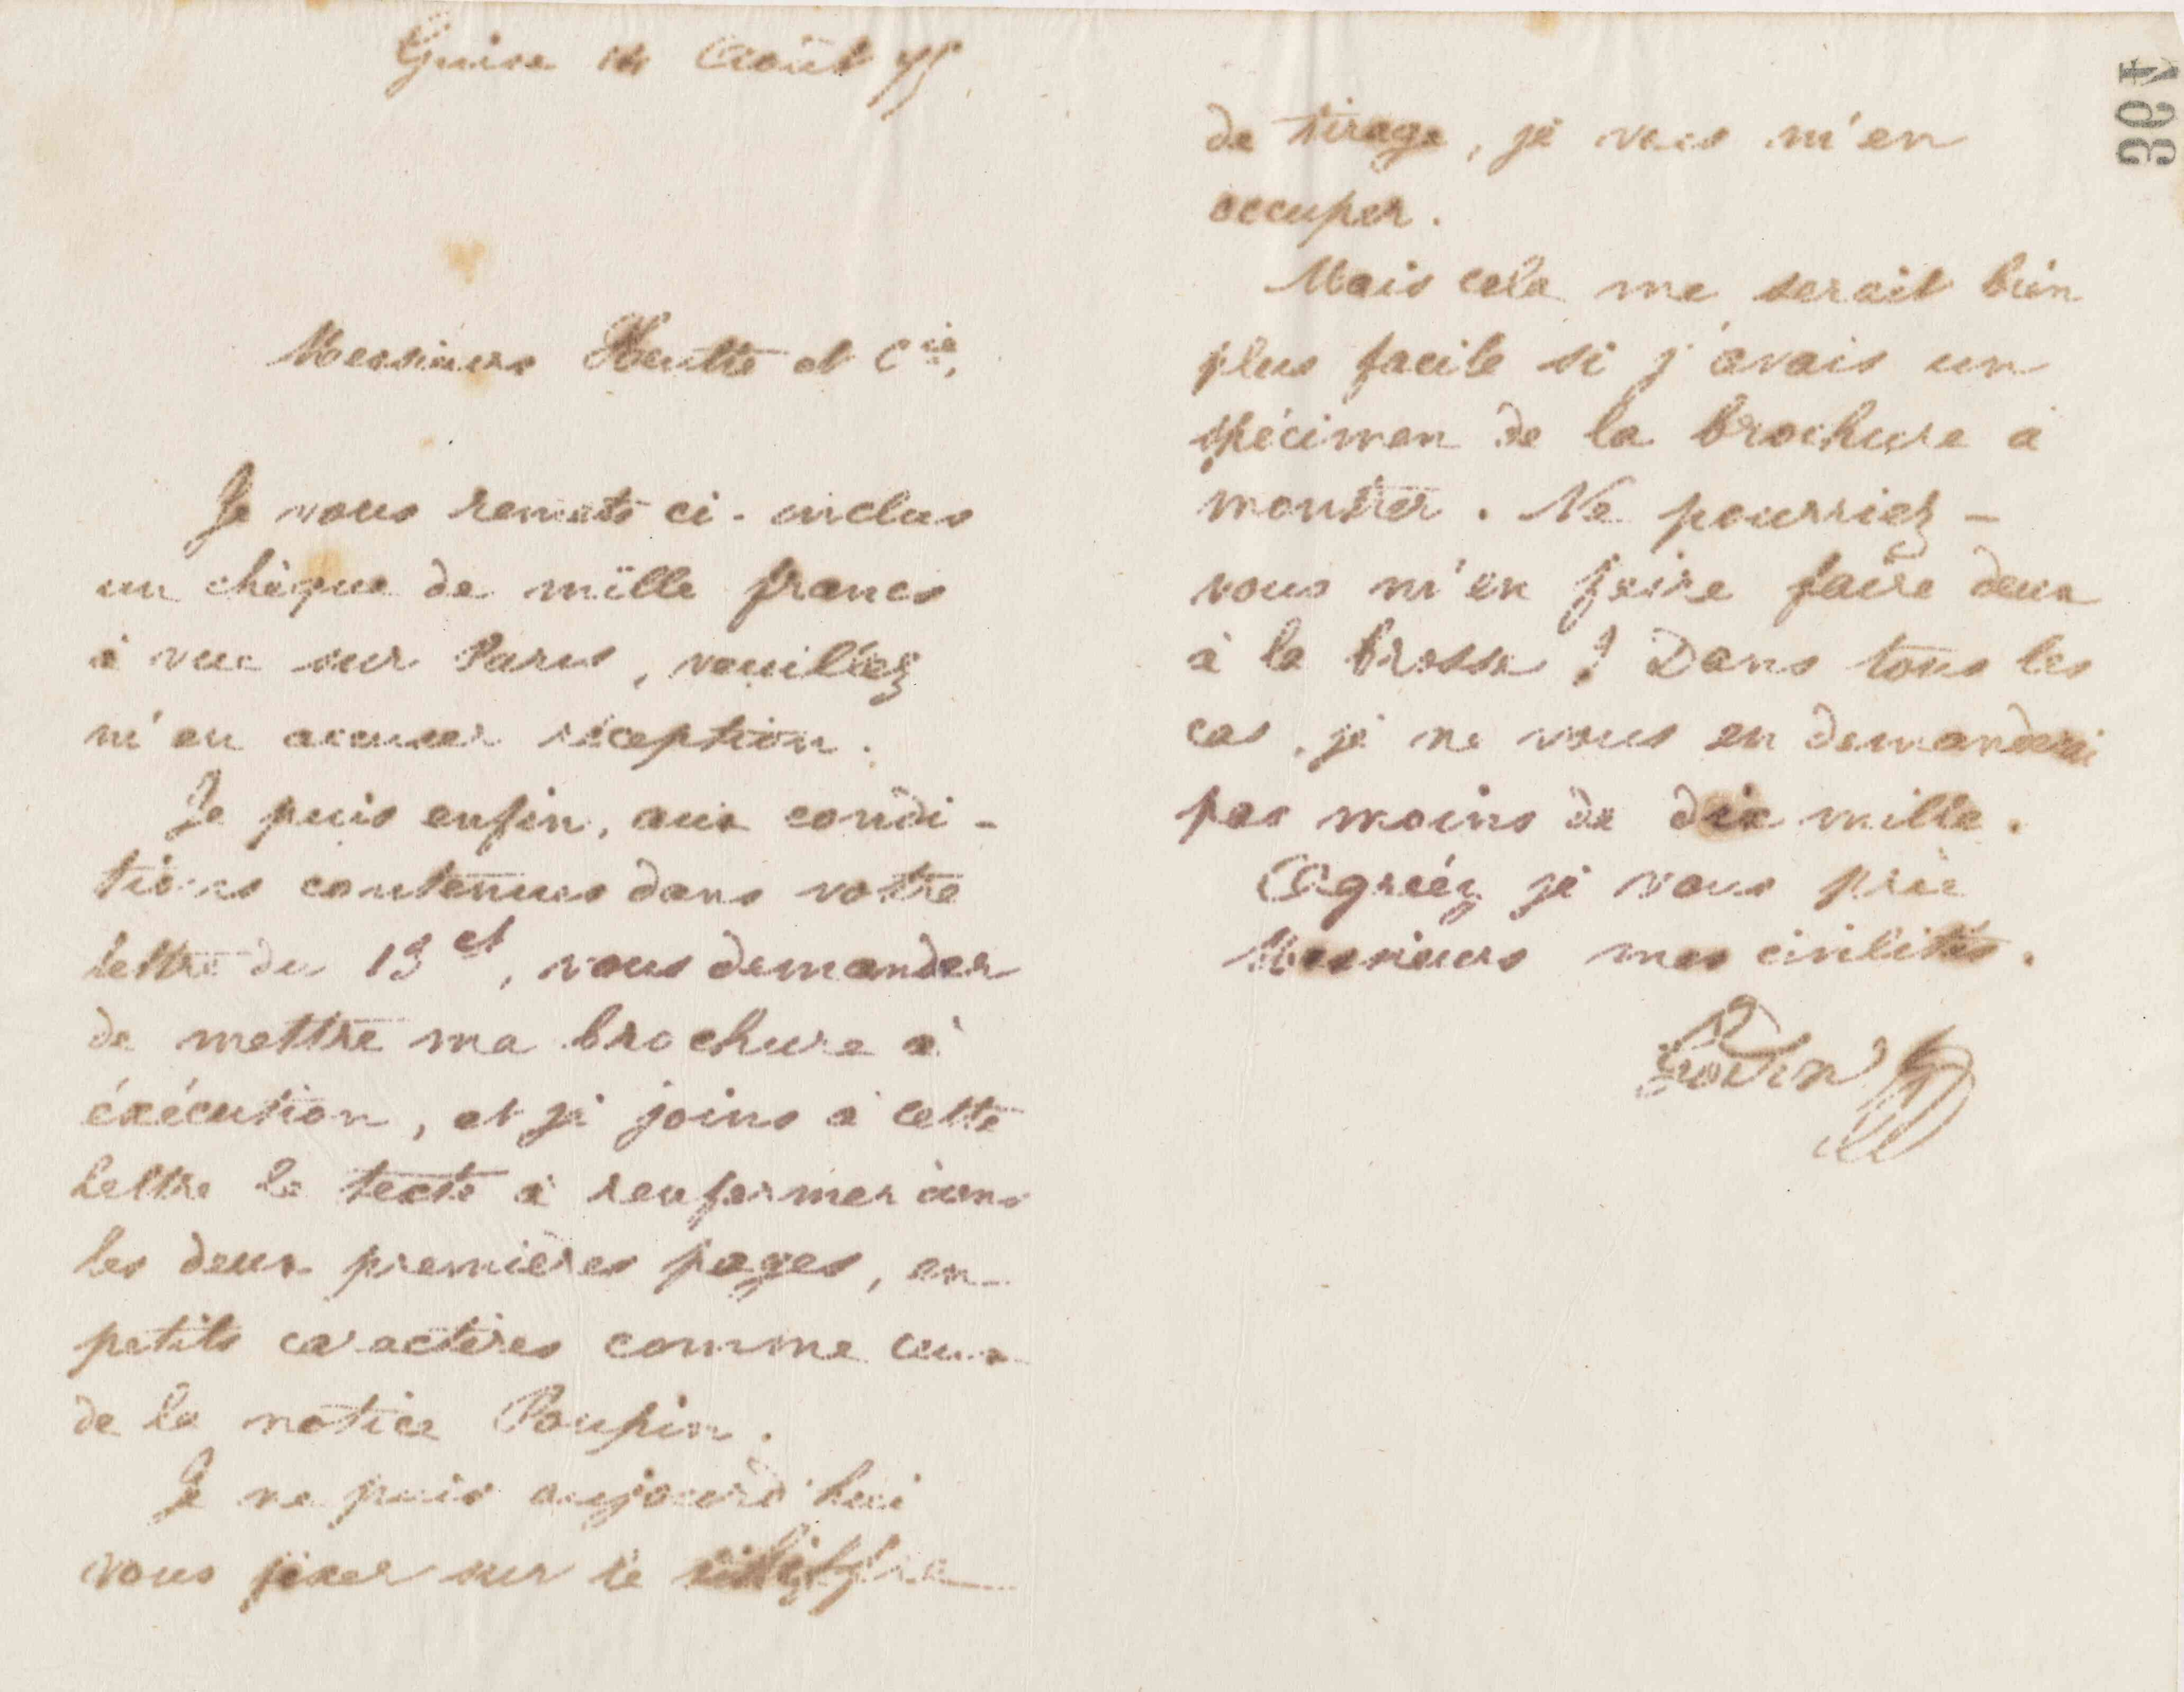 Guise 14 Août 75
Messieurs Heutte et Cie,
Je vous remets ci-inclus
un chèque de mille francs
à vue sur Paris, veuillez
m'en accuser réception.
Je puis enfin, aux condi-
tions contenues dans votre
lettre du 13 ct, vous demander
de mettre ma brochure à
exécution, et je joins à cette
lettre le texte à renfermer dans
les deux premières pages, en
petits caractères comme ceux
de la notice Poupin.
Je ne puis aujourd'hui
vous fixer sur le chiffre
de tirage, je vais m'en
occuper.
Mais cela me serait bien
plus facile si j'avais un
spécimen de la brochure à
montrer. Ne pourriez-
vous m'en faire faire deux
à la brosse ? Dans tous les
cas, je ne vous en demanderai
pas moins de dix mille.
Agréez je vous prie
Messieurs mes civilités.
Godin